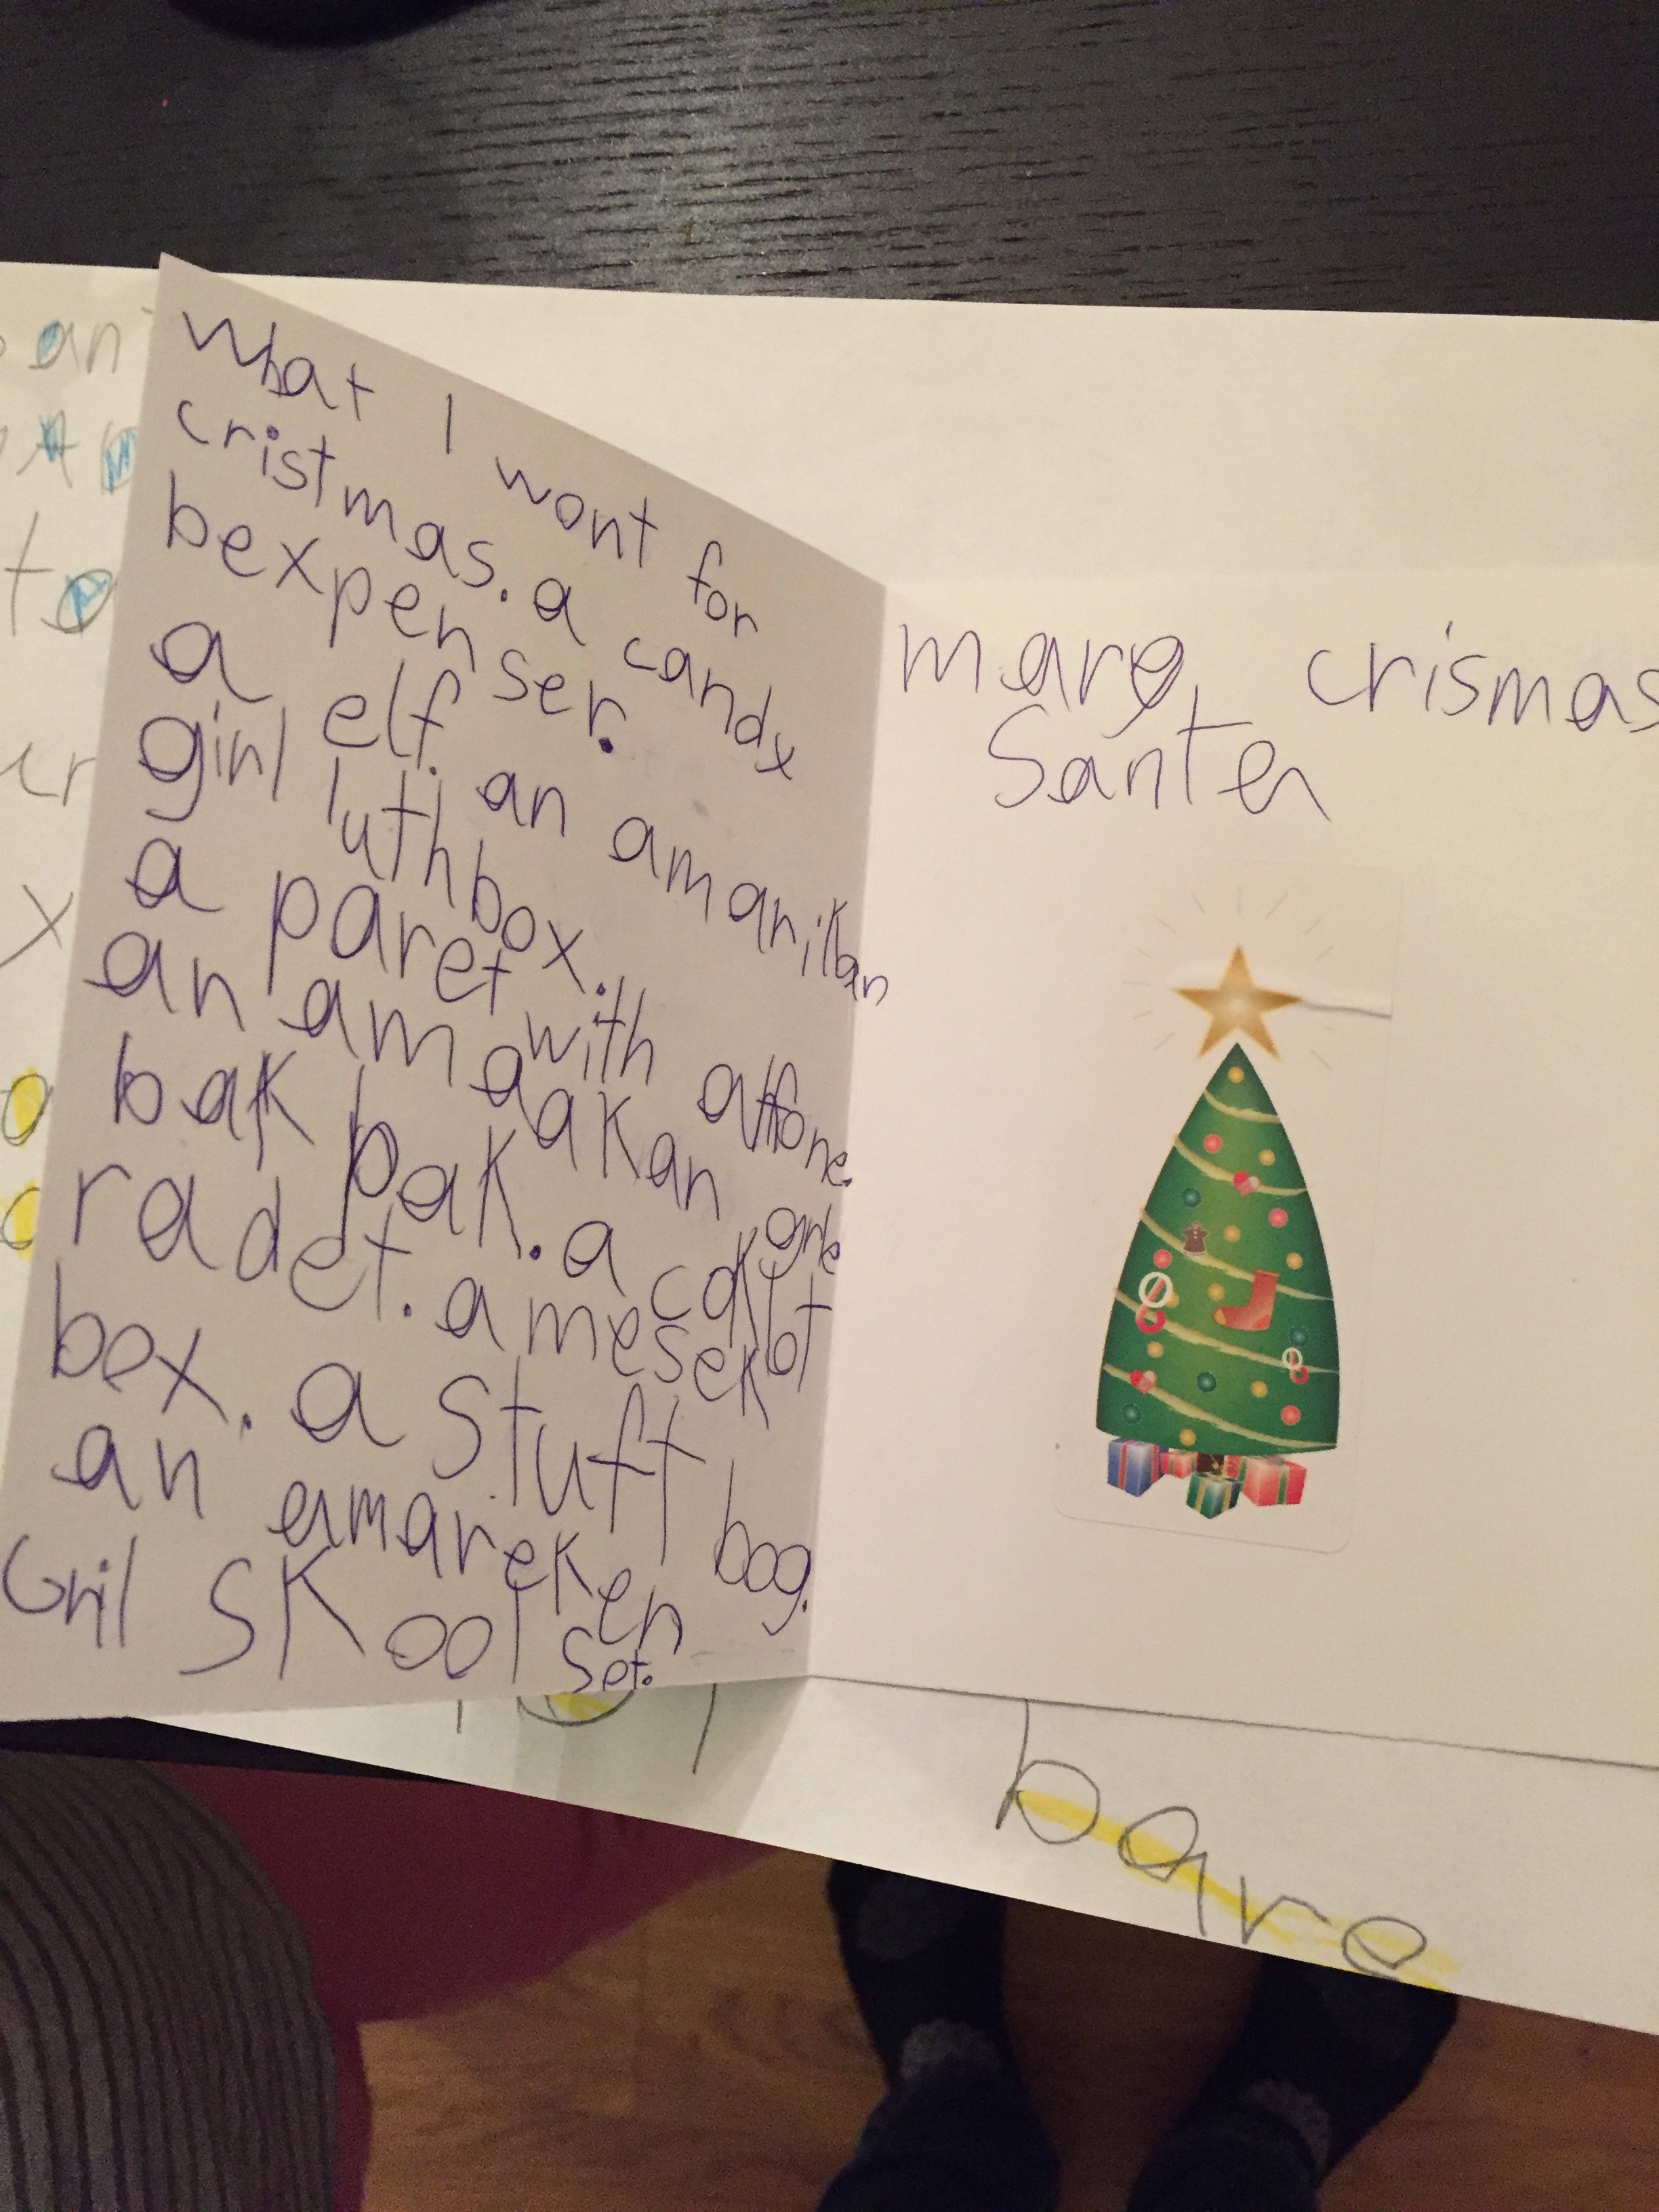 What I wont for
cristmas. a candy
bexpenser.
a elf. an amarikan
girl luthbox.
a paret with
an amaakan
bak pak. a
radet. a mesek
box. a stuft bog.
an emareken
Gril Skool set.
crismas
Santa
an
to
x
bare